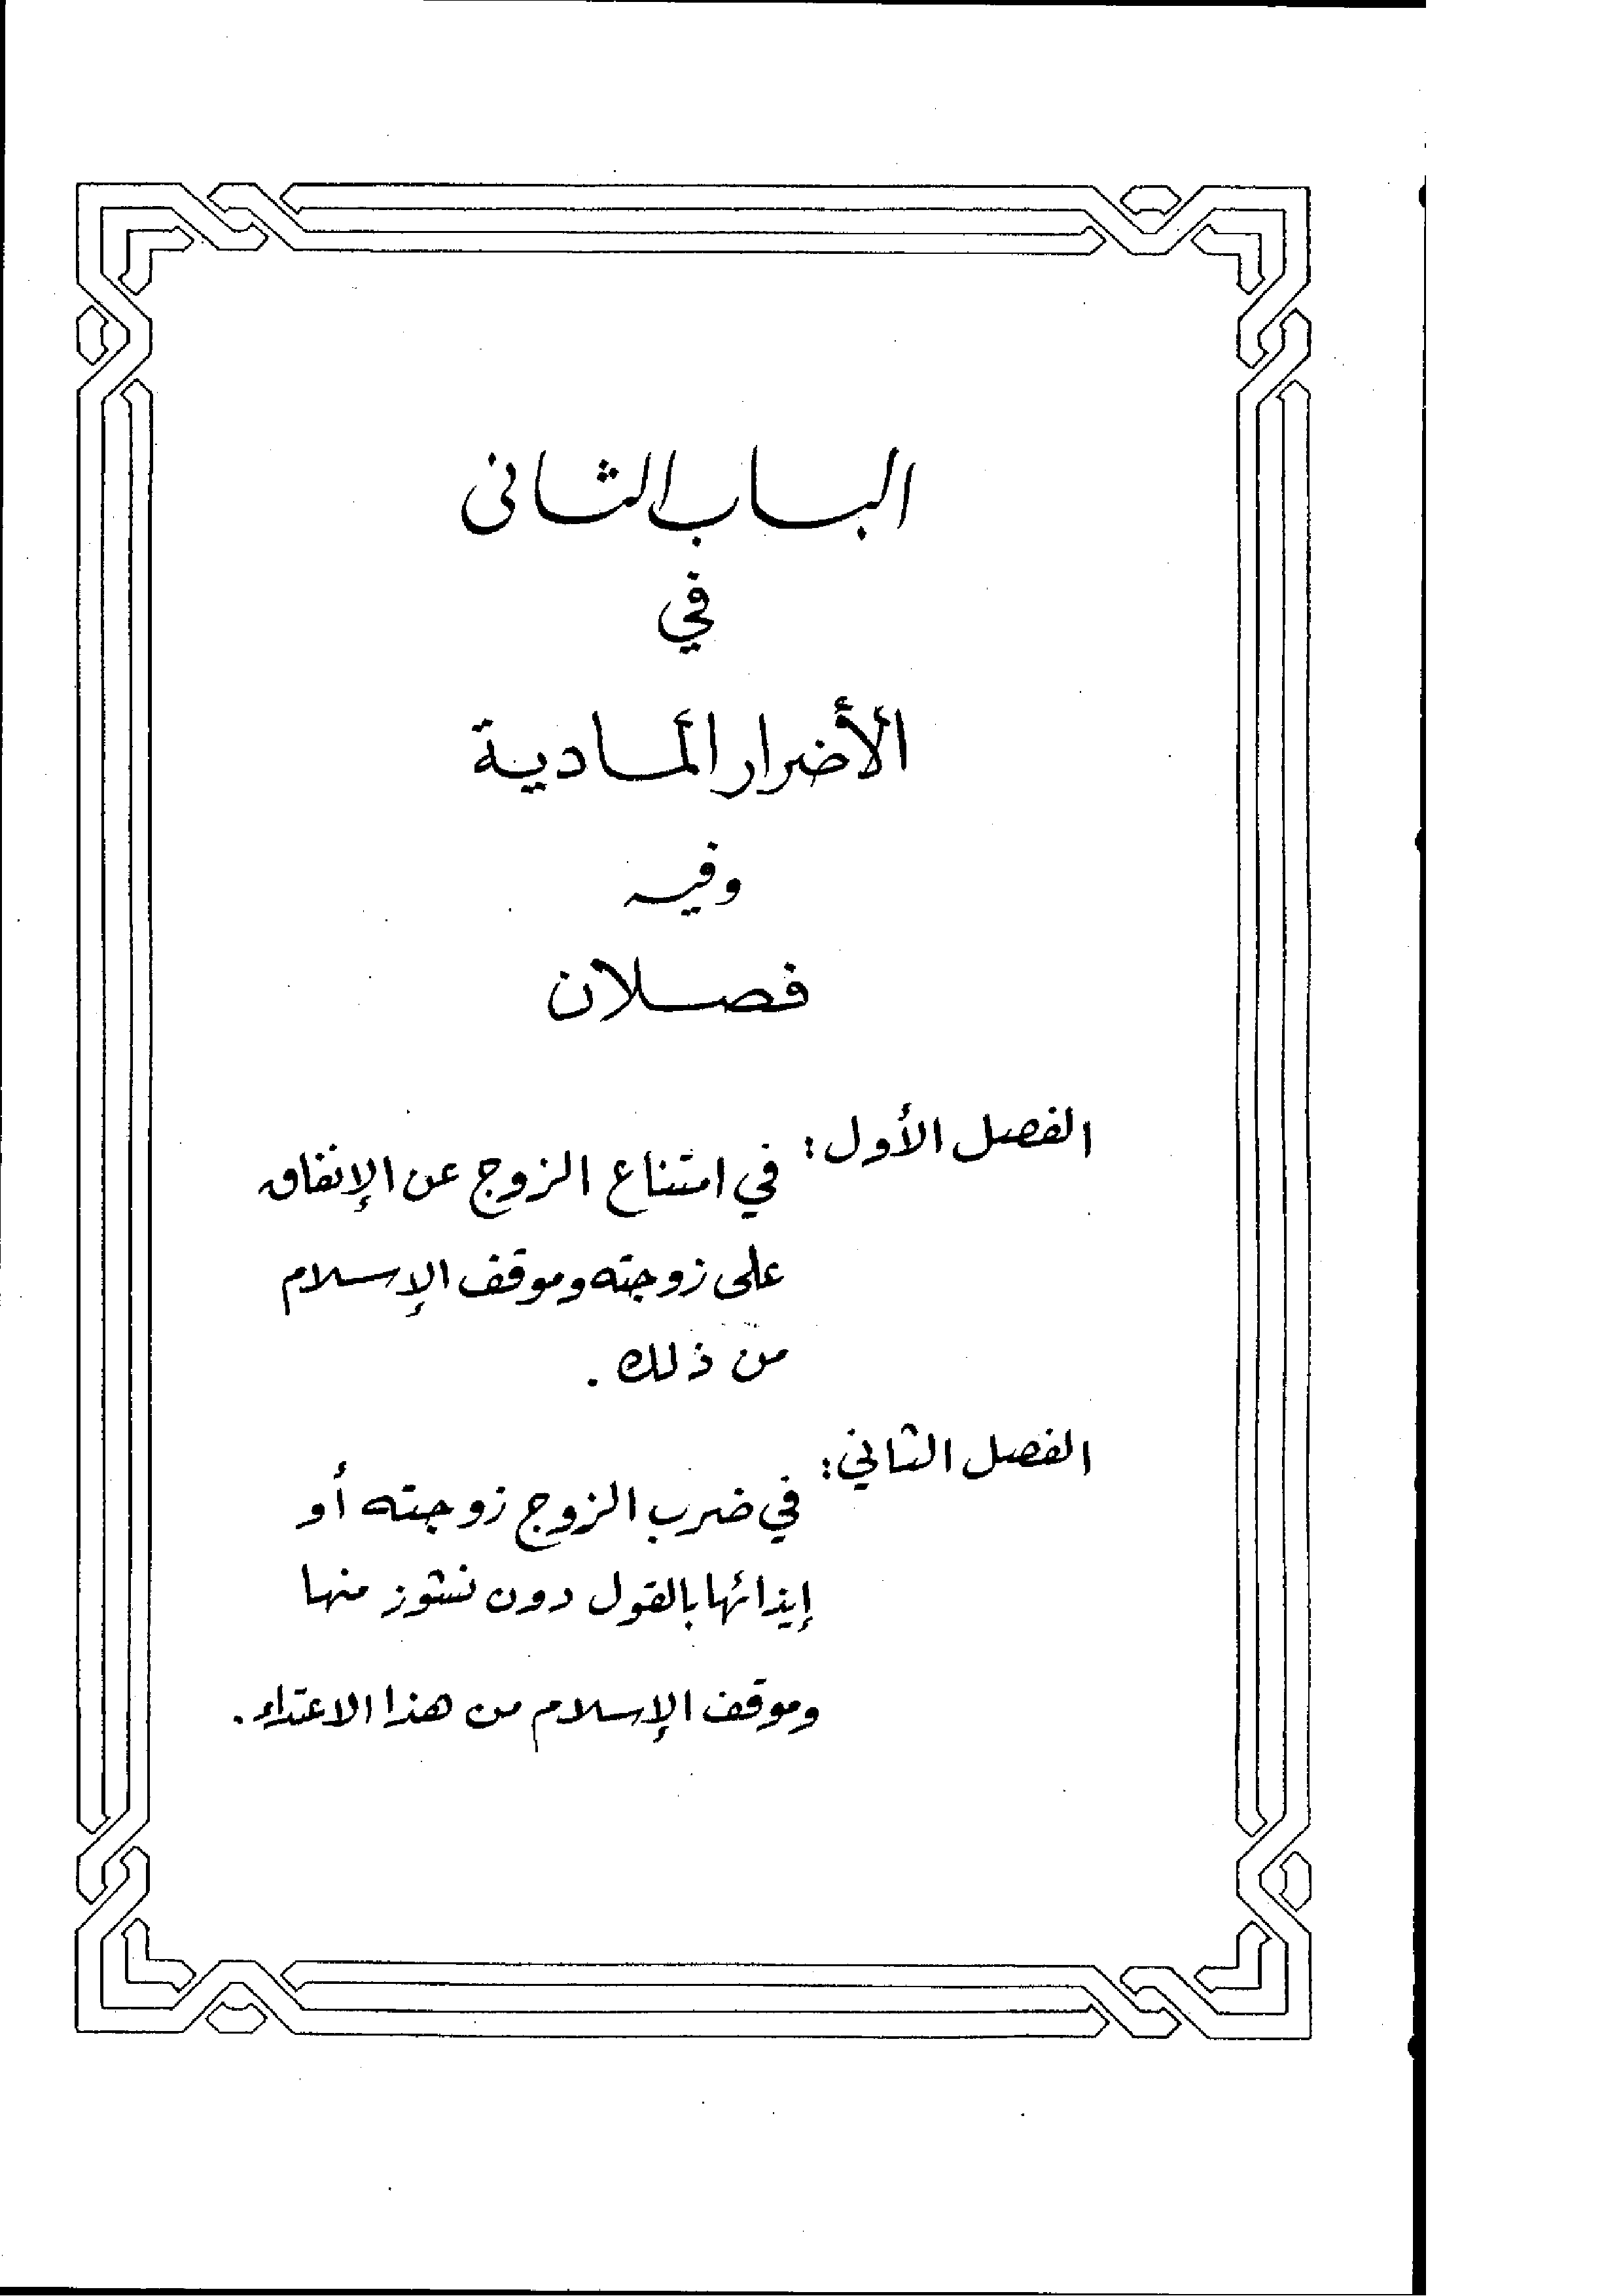 الباب الثانى
في
الأضرار المادية
وفيه
فصلان
الفصل الأول:
في امتناع الزوج عن الإنفاق
على زوجته وموقف الإسلام
من ذلك.
الفصل الثاني:
في ضرب الزوج زوجته أو
إيذائها بالقول دون نشوز منها
وموقف الإسلام من هذا الاعتداء.